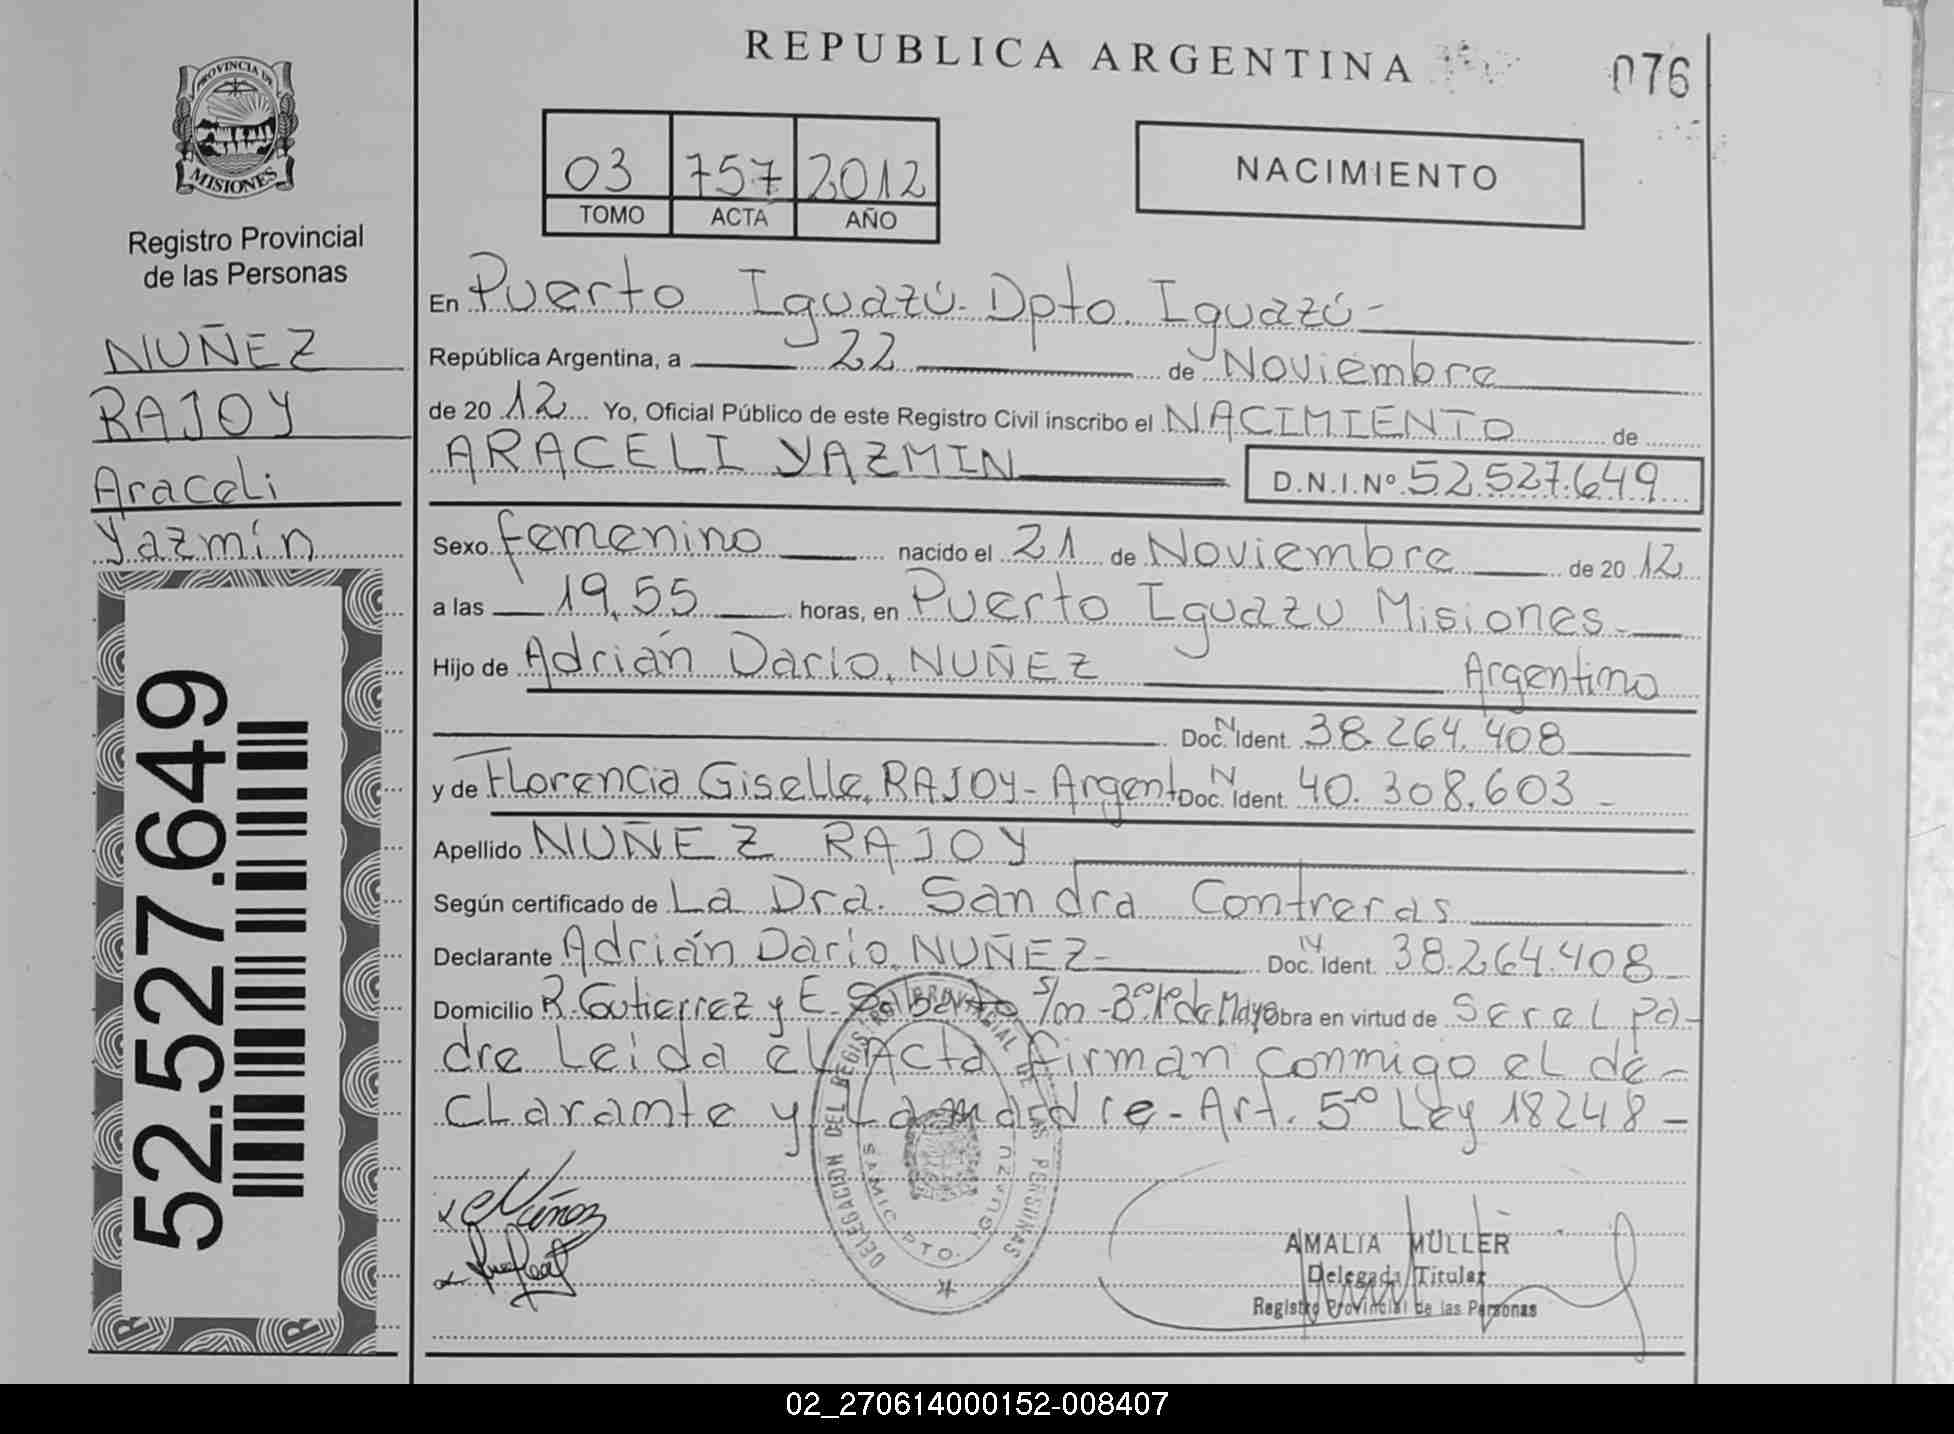 PROVINCIA DE
MISIONES
Registro Provincial
de las Personas
NUÑEZ
RAJOY
Araceli
Yazmín
52.527.649
REPUBLICA ARGENTINA
076
03 757 2012
TOMO ACTA AÑO
NACIMIENTO
En Puerto Iguazú - Dpto. Iguazú -
República Argentina, a 22 de Noviembre
de 20 12 Yo, Oficial Público de este Registro Civil inscribo el NACIMIENTO de
ARACELI YAZMIN D.N.I.Nº 52.527.649
Sexo femenino nacido el 21 de Noviembre de 20 12
a las 19,55 horas, en Puerto Iguazu Misiones -
Hijo de Adrián Darío, NUÑEZ Argentino
Doc. N Ident. 38.264.408
y de Florencia Giselle, RAJOY - Argent. Doc. N Ident. 40.308.603 -
Apellido NUÑEZ RAJOY
Según certificado de La Dra. Sandra Contreras
Declarante Adrián Darío, NUÑEZ - Doc. N Ident. 38.264.408
Domicilio R. Gutierrez y E. s/n - Bº 1º de Mayo Obra en virtud de Ser el pa-
dre Leida el Acta firman conmigo el de-
clarante y la madre - Art. 5º Ley 18248 -
DELEGACION DEL REGISTRO PROVINCIAL DE LAS PERSONAS
DPTO. IGUAZU
Núñez
AMALIA MULLER
Delegada Titular
Registro Provincial de las Personas
02_270614000152-008407